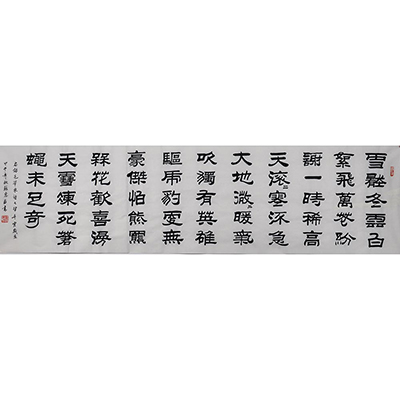 雪壓冬雲白
絮飛萬花紛
謝一時稀高
天滾〻寒流急
大地微〻暖氣
吹獨有英雄
驅虎豹更無
豪傑怕熊羆
槑花歡喜漫
天雪凍死蒼
蠅未足奇